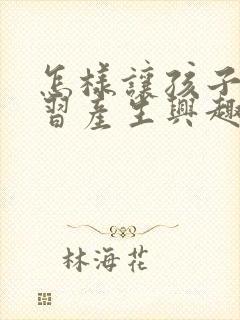 怎樣讓孩子
習產生興趣
林海花